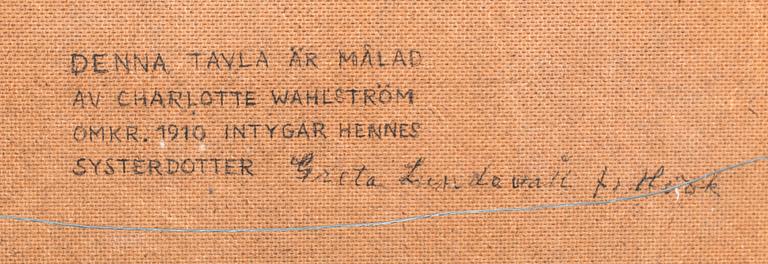 DENNA TAVLA ÄR MÅLAD
AV CHARLOTTE WAHLSTRÖM
OMKR. 1910 INTYGAR HENNES
SYSTERDOTTER Greta Lindavall f. Höök